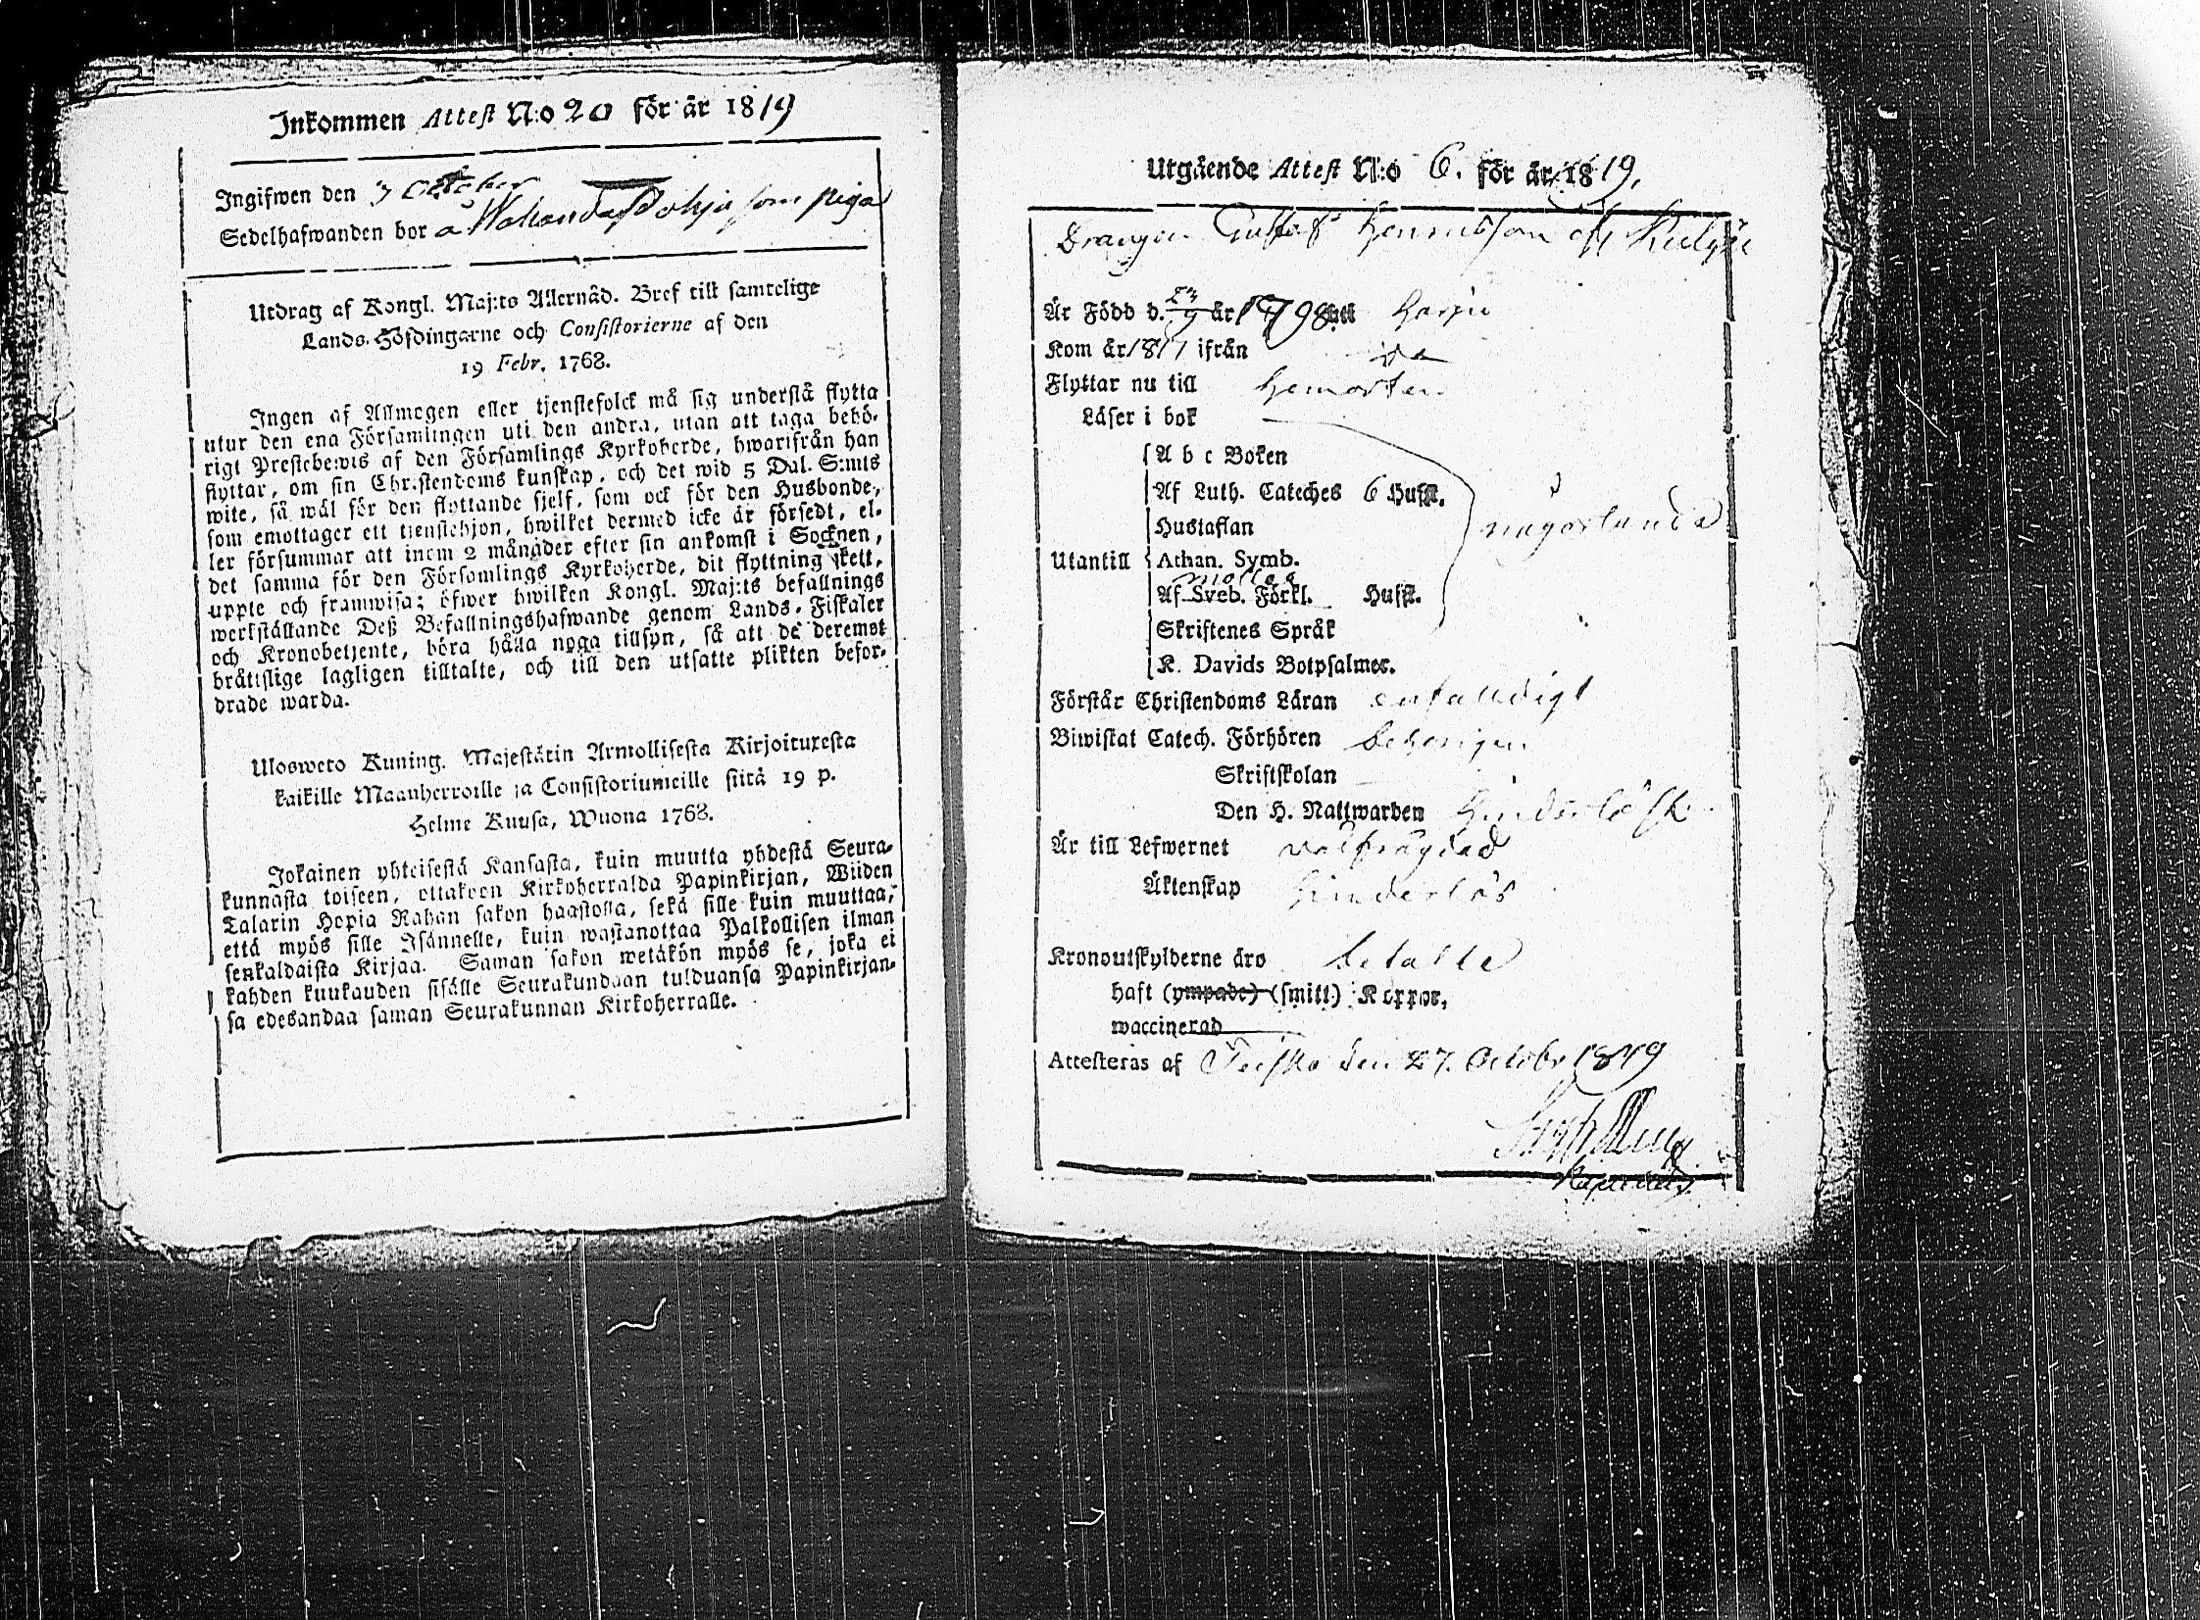 Inkommen Attest N:o 20 för år 1819
Ingifwen den 7 October
Sedelhafwanden bor å som piga
Utdrag af Kongl. Maj:ts Allernåd. Bref till samtelige
Lands-Höfdingarne och Consistorierne af den
19 Febr. 1768.
Ingen af Allmogen eller tjenstefolck må sig understå flytta
utur den ena Församlingen uti den andra, utan att taga behö-
rigt Prestebewis af den Församlings Kyrkoherde, hwarifrån han
flyttar, om sin Christendoms kunskap, och det wid 5 Dal. S:mts
wite, så wäl för den flyttande sjelf, som ock för den Husbonde,
som emottager ett tjenstehjon, hwilket dermed icke är försedt, el-
ler försummar att inom 2 månader efter sin ankomst i Socknen,
det samma för den Församlings Kyrkoherde, dit flyttning skett,
uppte och framwisa; öfwer hwilken Kongl. Maj:ts befallnings
werkställande Deß Befallningshafwande genom Lands-Fiskaler
och Kronobetjente, böra hålla noga tillsyn, så att de deremot
brätislige lagligen tilltalte, och till den utsatte plikten befor-
drade warda.
Ulosweto Kuning. Majestätin Armollisesta Kirjoituxesta
kaikille Maanherroille ja Consistoriumeille siitä 19 p.
Helme Kuusa, Wuona 1768.
Jokainen yhteisestä Kansasta, kuin muutta yhdestä Seura-
kunnasta toiseen, ottakoon Kirkoherralda Papinkirjan, Wiiden
Talarin Hopia Rahan sakon haastolla, sekä sille kuin muuttaa,
että myös sille Isännelle, kuin wastanottaa Palkollisen ilman
senkaldaista Kirjaa. Saman sakon wetäkön myös se, joka ei
kahden kuukauden sisälle Seurakundaan tulduansa Papinkirjan-
sa edesandaa saman Seurakunnan Kirkoherralle.
Utgående Attest N:o 6. för år 1819.
Drängen Gustaf Henricsson
Är Född d. år 1798 uti Harju
Kom år 1811 ifrån
Flyttar nu till hemorten
Läser i bok
A b c Boken
Af Luth. Cateches 6 Hufst.
Hustaflan
Utantill Athan. Symb. någorlunda
Af Sveb. Förkl. Hufst.
Skriftenes Språk
K. Davids Botpsalmer.
Förstår Christendoms Läran enfalldigt
Biwistat Catech. Förhören behörigen
Skriftskolan
Den H. Nattwarden
Är till Lefwernet välfrägdad
Äktenskap hinderlös
Kronoutskylderne äro betallte
haft (ympade) (smitt) Koppor,
waccinerad
Attesteras af Teisko den 27. Octobr 1819